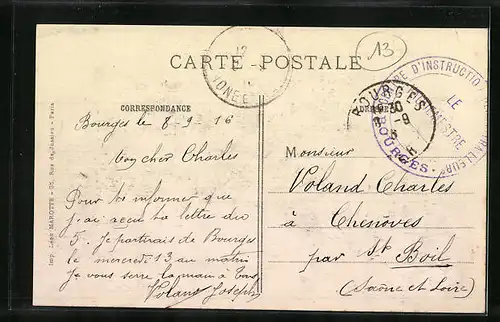 CARTE POSTALE
13
CORRESPONDANCE
Bourges le 8-9-16
Mon cher Charles
Pour t'informer que
j'ai reçu ta lettre du
5. Je partirais de Bourges
le mercredi 13 au matin
Je vous serre la main à tous
Voland Joseph
Monsieur
Voland Charles
à Chenôves
par St Boil
(Saône et Loire)
BOURGES
D'INSTRUCTION
LE
BOURGES
Imp. Léon MAROTTE - 35, Rue de Jussieu - Paris